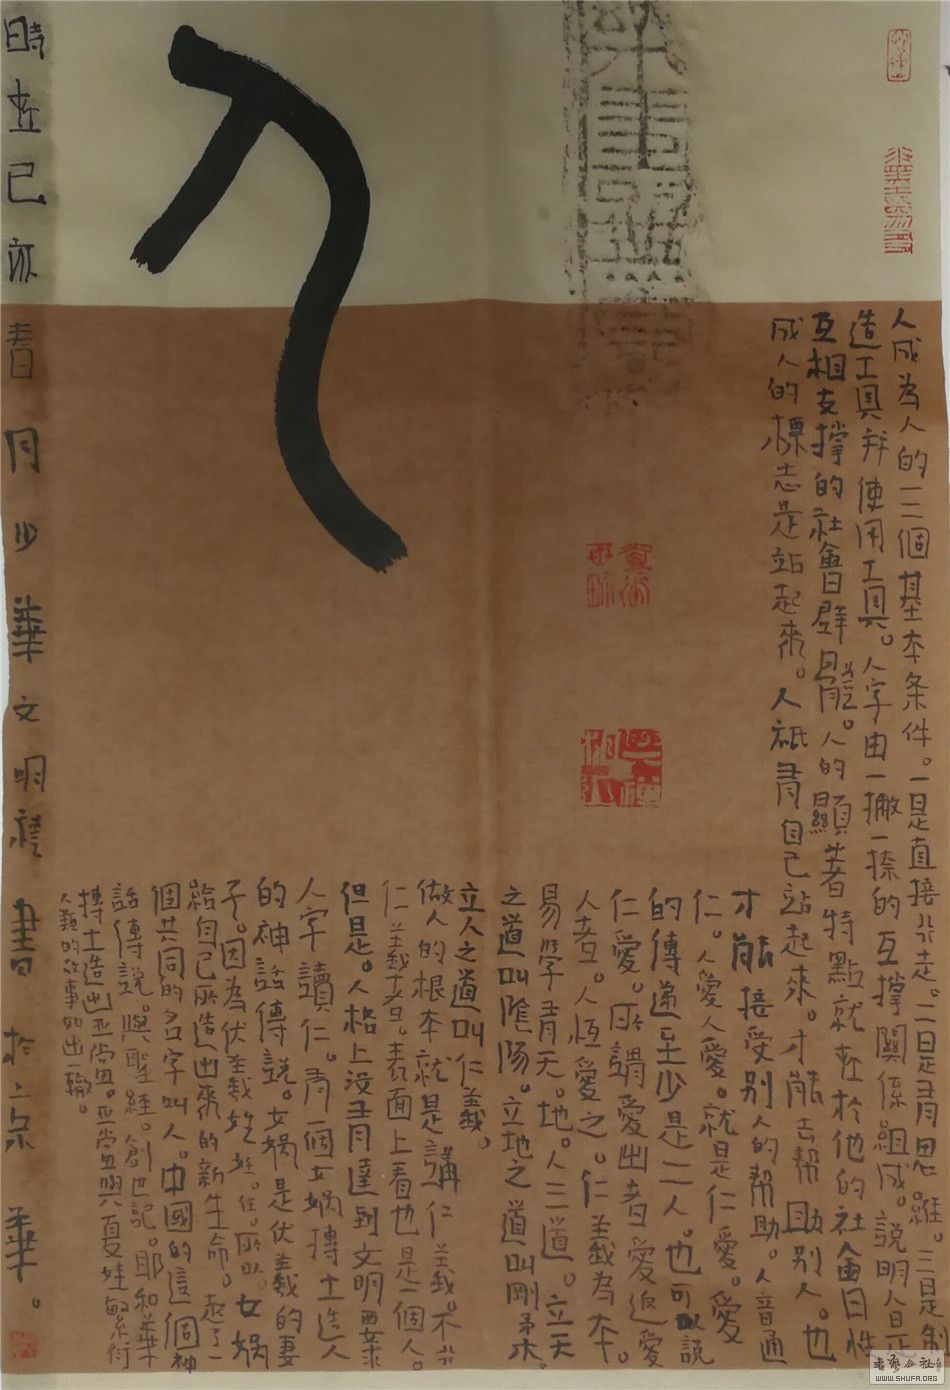 人
人成為人的三個基本条件。一是直接行走。二是有思維。三是制
造工具并使用工具。人字由一撇一捺的互撑關係組成。說明人是
互相支撑的社會群體。人的顯著特點就在於他的社會性
成人的標志是站起來。人祇有自己站起來。才能去幫助别人。也
才能接受别人的幫助。人音通
仁。人愛人愛。就是仁愛。愛
的傳遞至少是二人。也可以説
仁愛。所謂愛出者愛返愛
人者。人恆愛之。仁義為本。
易學有天。地。人三道。立天
之道叫陰陽。立地之道叫剛柔。
立人之道叫仁義。
做人的根本就是講仁義。不行
仁義者。表面上看也是一個人。
但是。人格上没有達到文明要求
人字讀仁。有一個女媧摶土造人
的神話傳説。女媧是伏義的妻
子。因為伏義姓任。所以。女媧
給自己所造出來的新生命。起了一
個共同的名字叫人。中國的這個神
話傳説。與聖經。創世記。耶和華
摶土造出亚當。亚當與夏娃繁衍
人類的故事如出一轍。
時在己亥春月少華文明禮書於上京華。
書藝公社
WWW.SHUFA.ORG